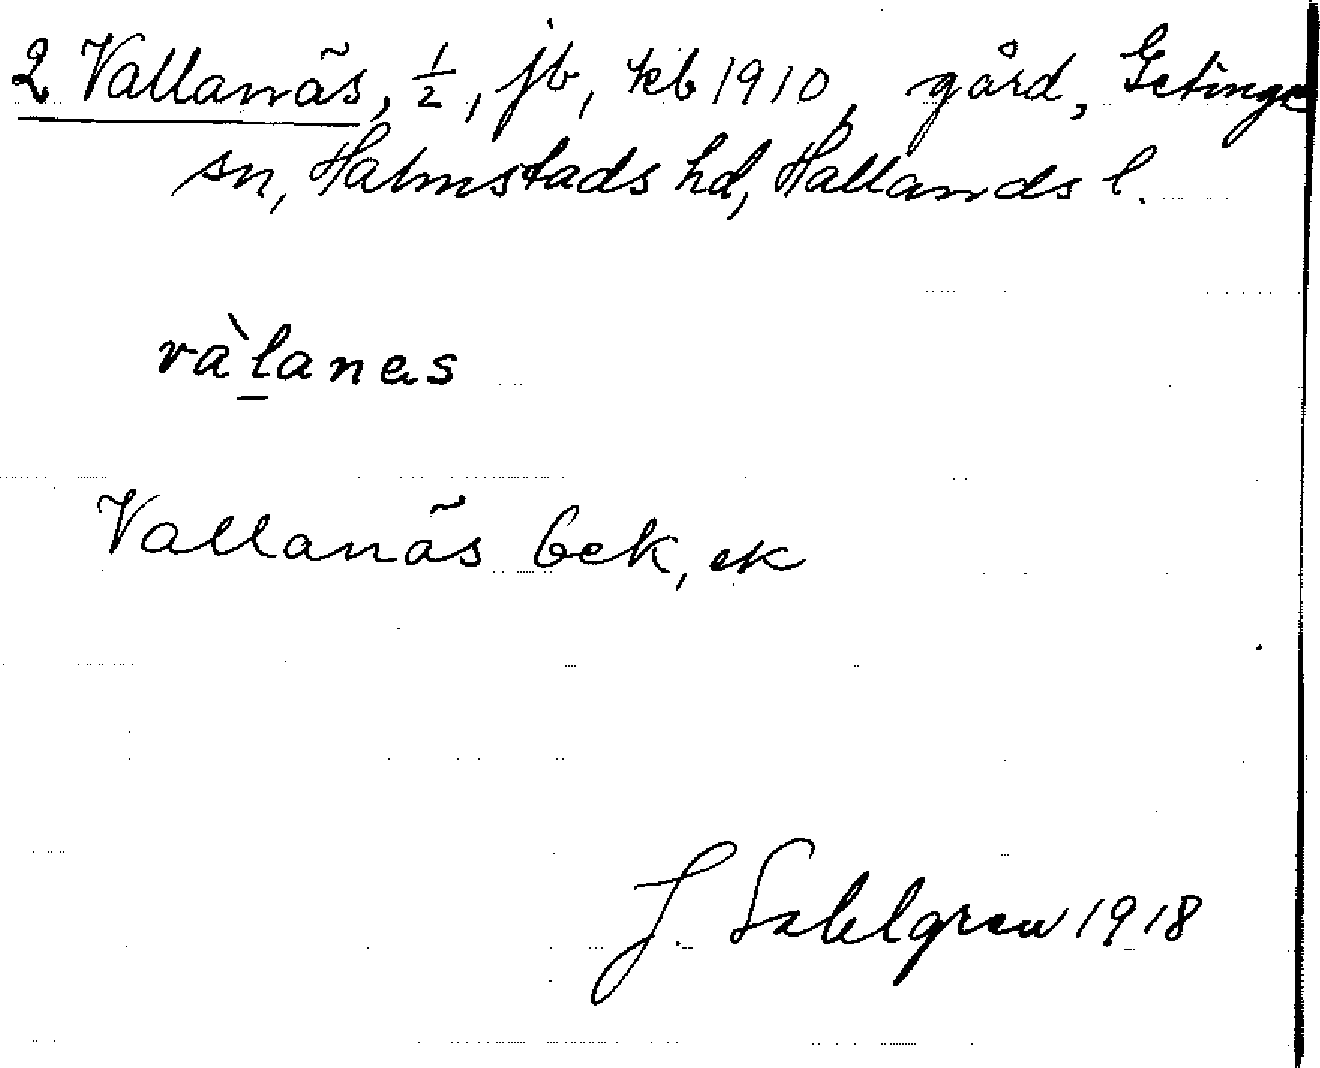 2 Vallanäs, 1/2, jb, kb 1910, gård, Getinge
sn, Halmstads hd, Hallands l.
va`lanas
Vallanäs bek, ek
J. Sahlgren 1918